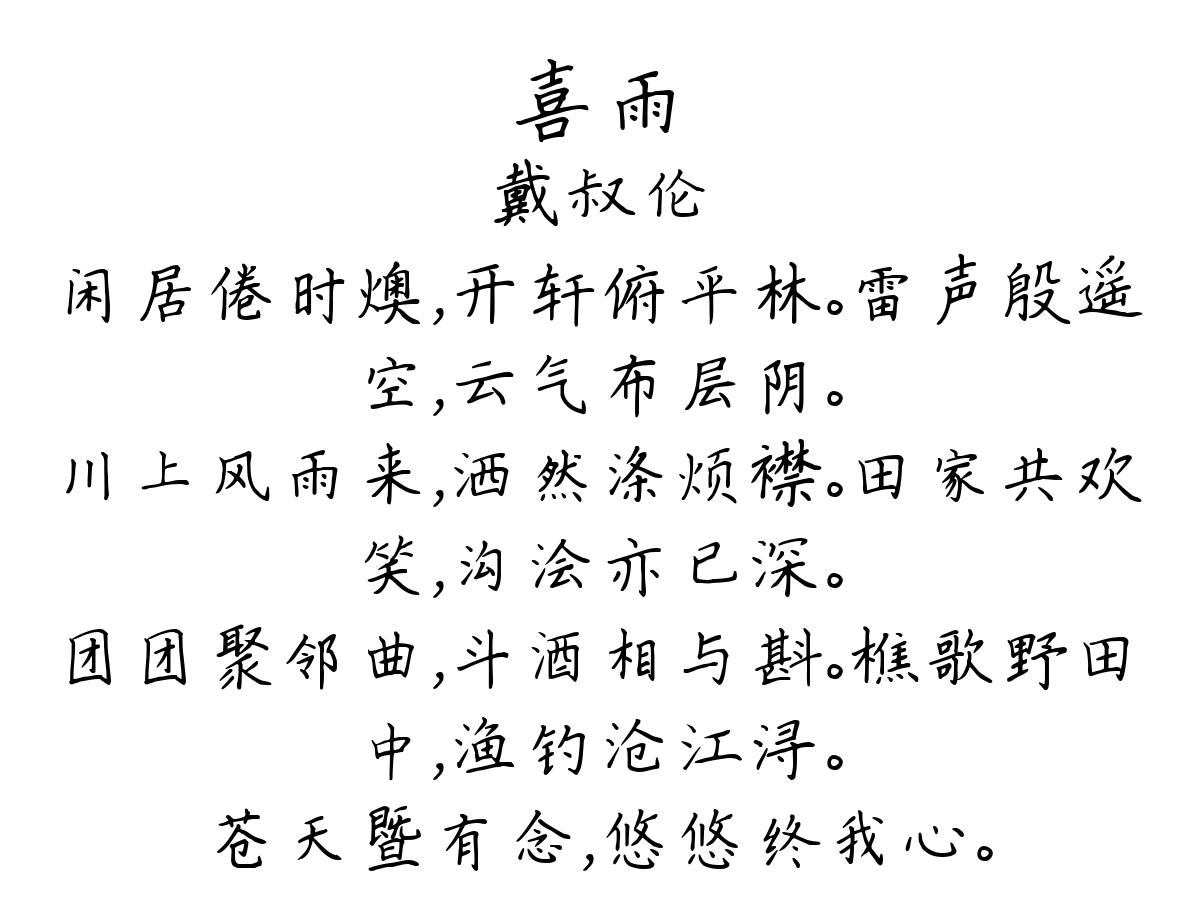 喜雨
戴叔伦
闲居倦时燠,开轩俯平林。雷声殷遥
空,云气布层阴。
川上风雨来,洒然涤烦襟。田家共欢
笑,沟浍亦已深。
团团聚邻曲,斗酒相与斟。樵歌野田
中,渔钓沧江浔。
苍天暨有念,悠悠终我心。